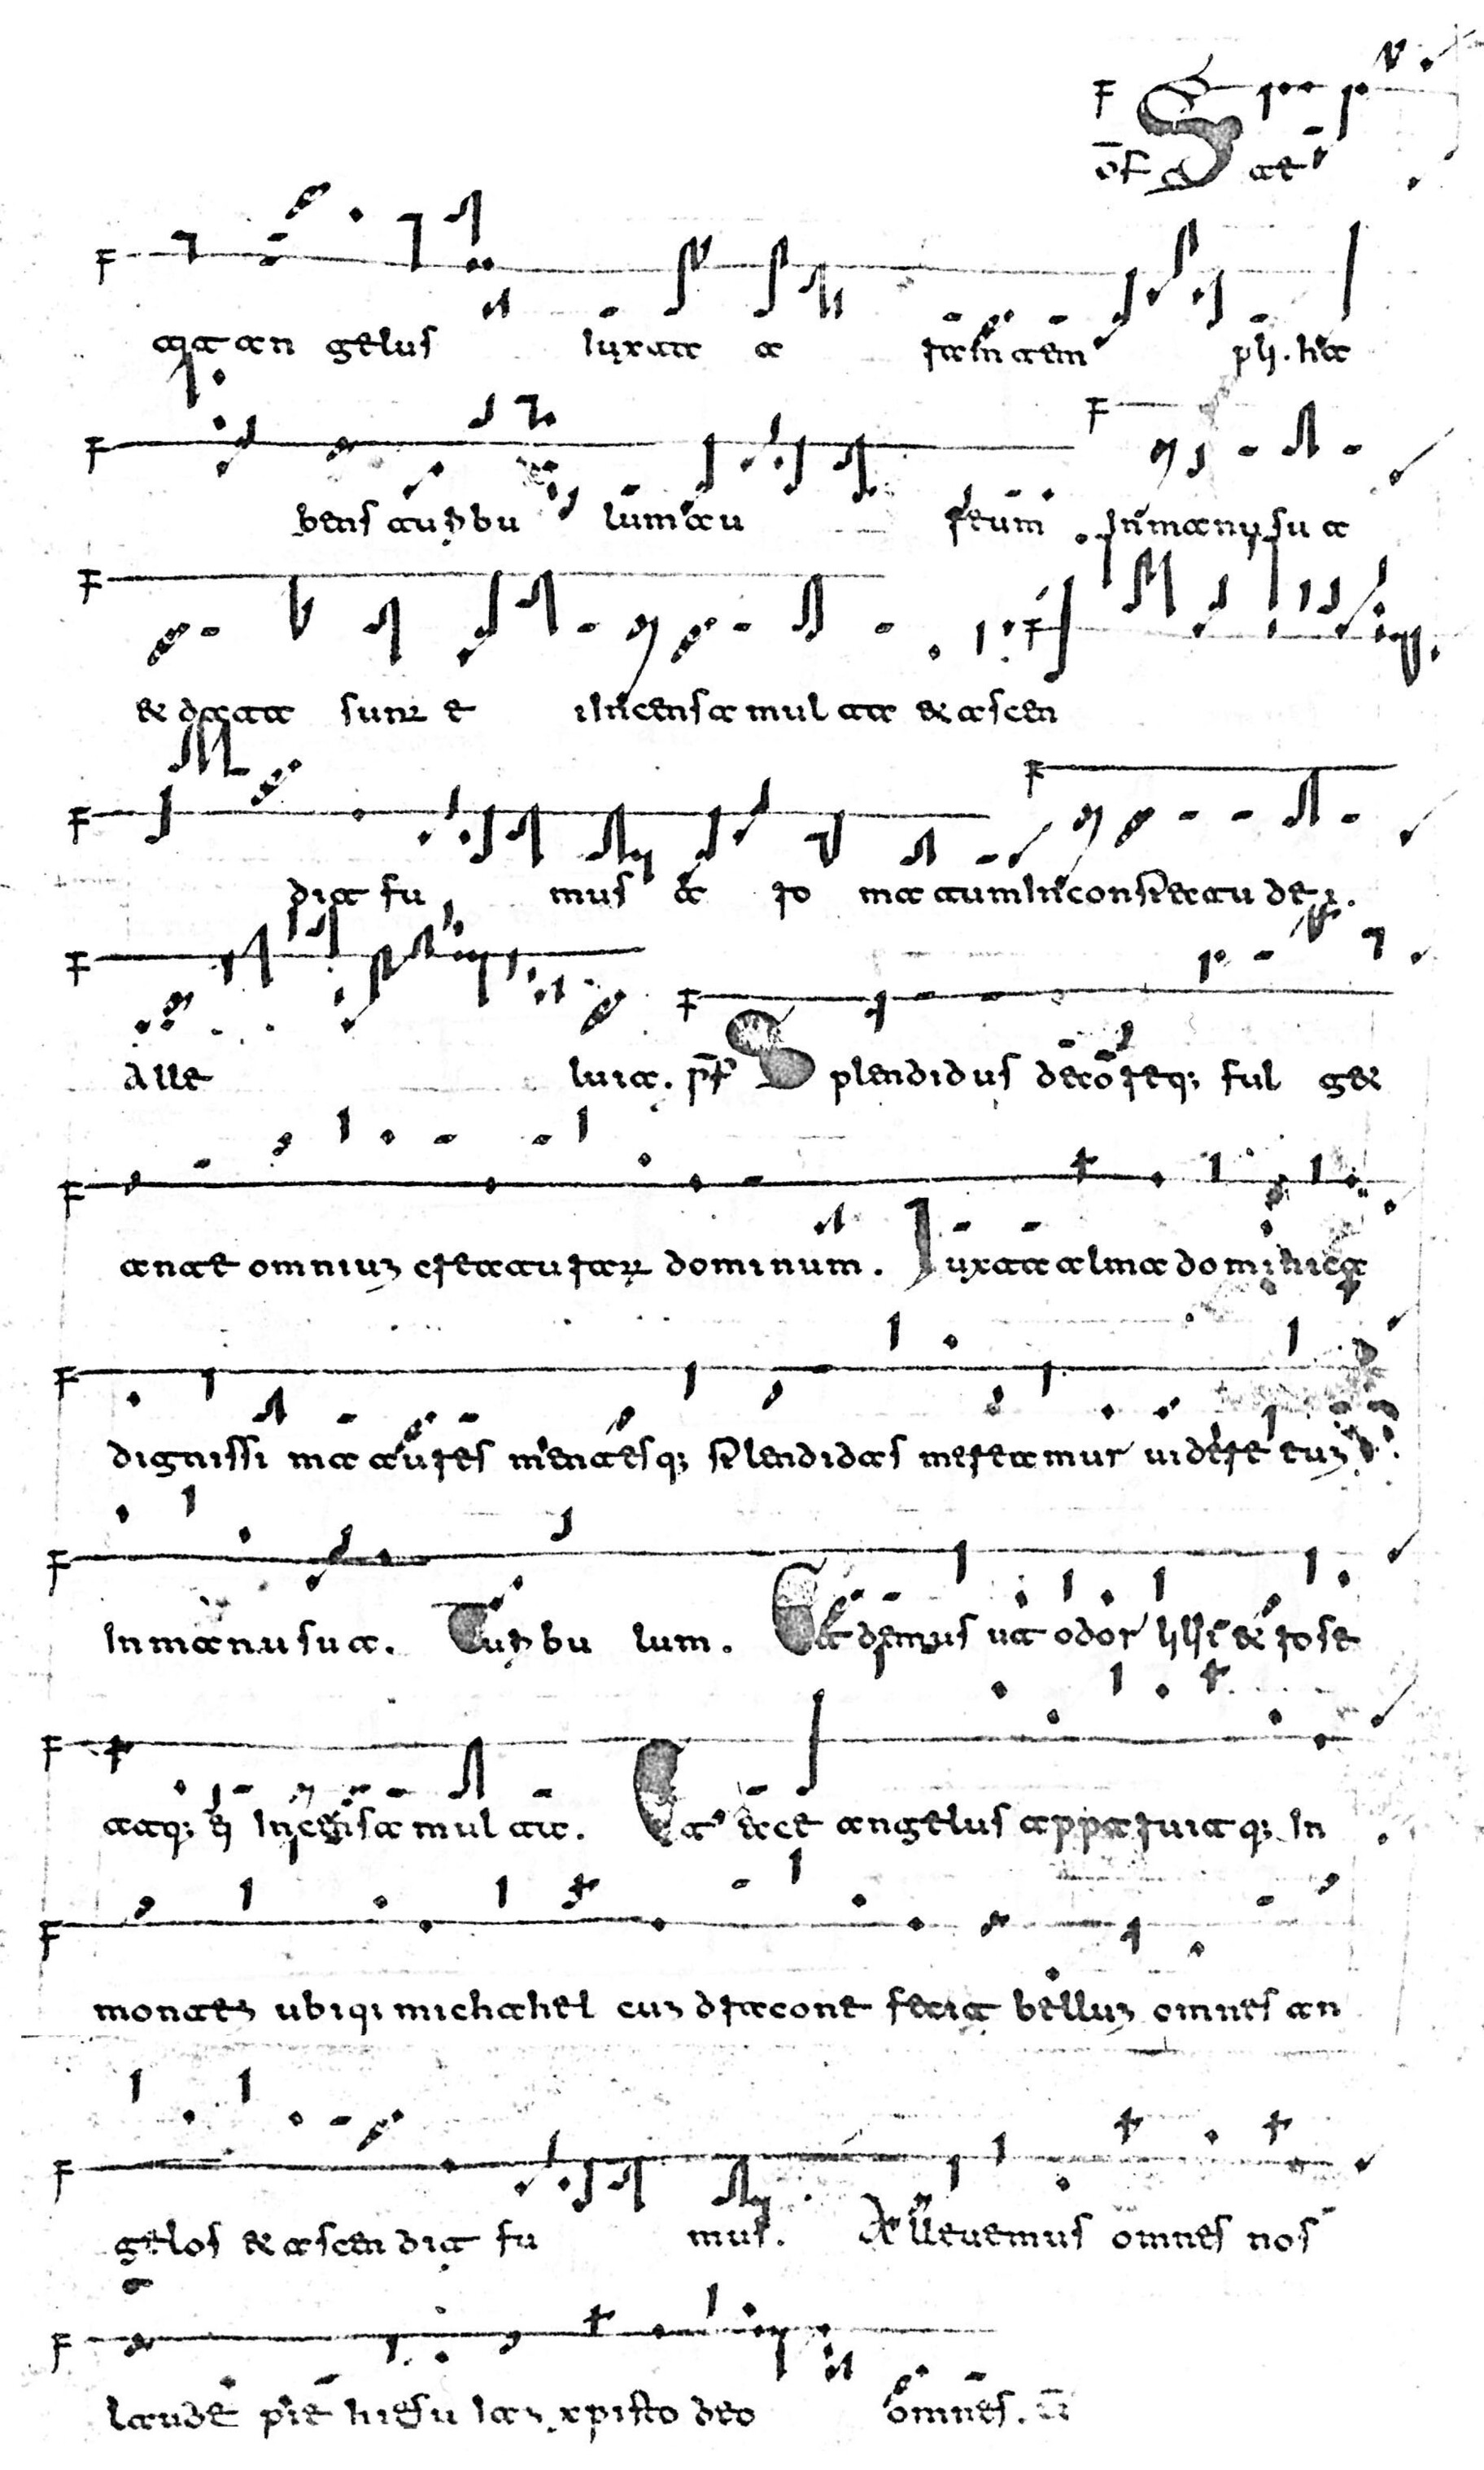 of Stet
it an gelus iuxta a ram tem pli. ha
bens turibu lum au reum. In manu sua
& data sunt e i Incensa multa & ascen
dit fu mus a ro ma tum In conspectu dei.
Alle luia. pr Splendidus decoreq; ful get
ante omnium creaturar dominum. Iuxta alma dominica
dignissi ma aures mentesq; splendidas mereamur uidere eum
In manu sua. Turibu lum. demus ut odor lilii & rose
atq; ei Incensa multa. angelus apparuitq; In
montem ubiq; michahel cum dracone fecit bellum omnes an
gelos & ascen dit fu mus. Alleuemus omnes nos
laude pie hiesu xpisto deo omnes.